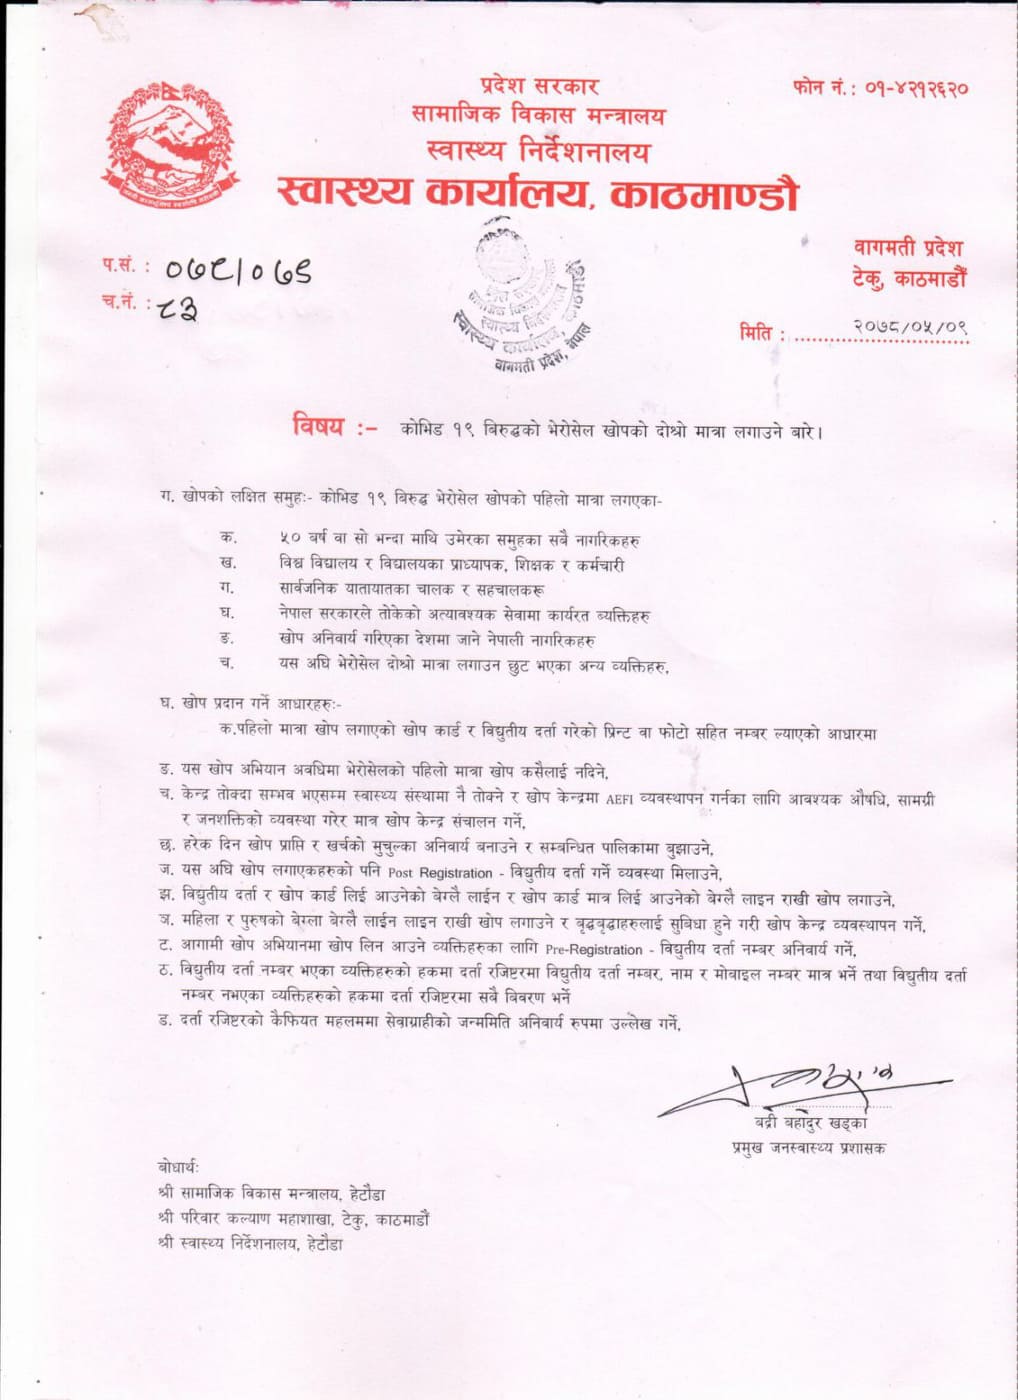 प्रदेश सरकार
सामाजिक विकास मन्त्रालय
स्वास्थ्य निर्देशनालय
स्वास्थ्य कार्यालय, काठमाण्डौ
फोन नं.: ०१-४२१२६२०
वागमती प्रदेश
टेकु, काठमाडौँ
प.सं. : ०७८/०७९
च.नं. : ८३
मिति : २०७८/०५/०९
स्वास्थ्य कार्यालय, काठमाडौं
वागमती प्रदेश, नेपाल
विषय :– कोभिड १९ बिरुद्धको भेरोसेल खोपको दोश्रो मात्रा लगाउने बारे।
ग. खोपको लक्षित समुहः- कोभिड १९ बिरुद्ध भेरोसेल खोपको पहिलो मात्रा लगएका-
क. ५० बर्ष वा सो भन्दा माथि उमेरका समुहका सबै नागरिकहरु
ख. विश्व विद्यालय र विद्यालयका प्राध्यापक, शिक्षक र कर्मचारी
ग. सार्वजनिक यातायातका चालक र सहचालकरू
घ. नेपाल सरकारले तोकेको अत्यावश्यक सेवामा कार्यरत व्यक्तिहरु
ङ. खोप अनिवार्य गरिएका देशमा जाने नेपाली नागरिकहरु
च. यस अघि भेरोसेल दोश्रो मात्रा लगाउन छुट भएका अन्य व्यक्तिहरु,
घ. खोप प्रदान गर्ने आधारहरुः-
क.पहिलो मात्रा खोप लगाएको खोप कार्ड र विद्युतीय दर्ता गरेको प्रिन्ट वा फोटो सहित नम्बर ल्याएको आधारमा
ङ. यस खोप अभियान अवधिमा भेरोसेलको पहिलो मात्रा खोप कसैलाई नदिने,
च. केन्द्र तोक्दा सम्भव भएसम्म स्वास्थ्य संस्थामा नै तोक्ने र खोप केन्द्रमा AEFI व्यवस्थापन गर्नका लागि आवश्यक औषधि, सामग्री
र जनशक्तिको व्यवस्था गरेर मात्र खोप केन्द्र संचालन गर्ने,
छ. हरेक दिन खोप प्राप्ति र खर्चको मुचुल्का अनिवार्य बनाउने र सम्बन्धित पालिकामा बुझाउने,
ज. यस अघि खोप लगाएकहरुको पनि Post Registration - विद्युतीय दर्ता गर्ने व्यवस्था मिलाउने,
झ. विद्युतीय दर्ता र खोप कार्ड लिई आउनेको बेग्लै लाईन र खोप कार्ड मात्र लिई आउनेको बेग्लै लाइन राखी खोप लगाउने,
ञ. महिला र पुरुषको बेग्ला बेग्लै लाईन लाइन राखी खोप लगाउने र बृद्धबृद्धाहरुलाई सुबिधा हुने गरी खोप केन्द्र व्यवस्थापन गर्ने,
ट. आगामी खोप अभियानमा खोप लिन आउने व्यक्तिहरुका लागि Pre-Registration - विद्युतीय दर्ता नम्बर अनिवार्य गर्ने,
ठ. विद्युतीय दर्ता नम्बर भएका व्यक्तिहरुको हकमा दर्ता रजिष्टरमा विद्युतीय दर्ता नम्बर, नाम र मोबाइल नम्बर मात्र भर्ने तथा विद्युतीय दर्ता
नम्बर नभएका व्यक्तिहरुको हकमा दर्ता रजिष्टरमा सबै बिवरण भर्ने
ड. दर्ता रजिष्टरको कैफियत महलममा सेवाग्राहीको जन्ममिति अनिवार्य रुपमा उल्लेख गर्ने,
बद्री बहादुर खड्का
प्रमुख जनस्वास्थ्य प्रशासक
बोधार्थः
श्री सामाजिक विकास मन्त्रालय, हेटौडा
श्री परिवार कल्याण महाशाखा, टेकु, काठमाडौं
श्री स्वास्थ्य निर्देशनालय, हेटौडा